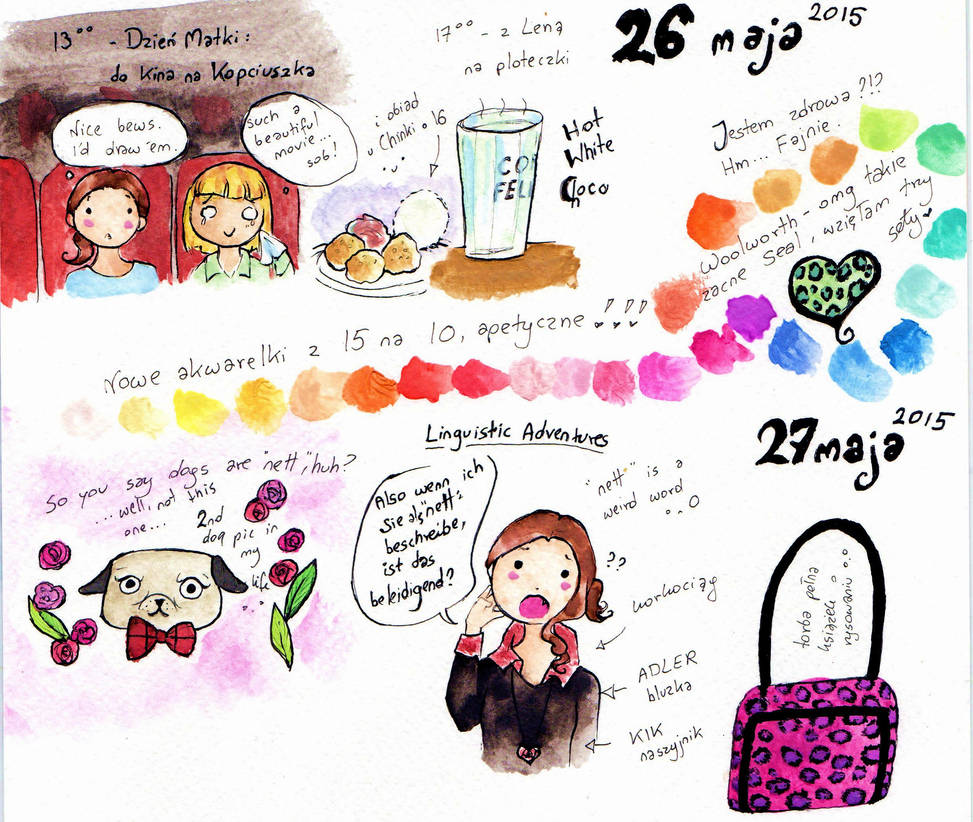 26 maja 2015
13⁰⁰ - Dzień Matki:
do kina na Kopciuszka
Nice bews.
I'd draw 'em.
such a
beautiful
movie...
sob!
17⁰⁰ - z Leną
na ploteczki
i obiad
u Chinki o 16
CO
FELL
Hot
White
Choco
Jestem zdrowa?!?
Hm... Fajnie.
Woolworth - omg takie
zacne Seal, wzięłam trzy
sety
Nowe akwarelki z 15 na 10, apetyczne !!!
27 maja 2015
So you say dogs are "nett", huh?
...well, not this
one...
2nd
dog pic in
my
life
...
Linguistic Adventures
Also wenn ich
Sie als "nett"
beschreibe,
ist das
beleidigend?
"nett" is a
weird word
o..O
??
korkociąg
ADLER
bluzka
KIK
naszyjnik
torba pełna
książek o
rysowaniu o.o